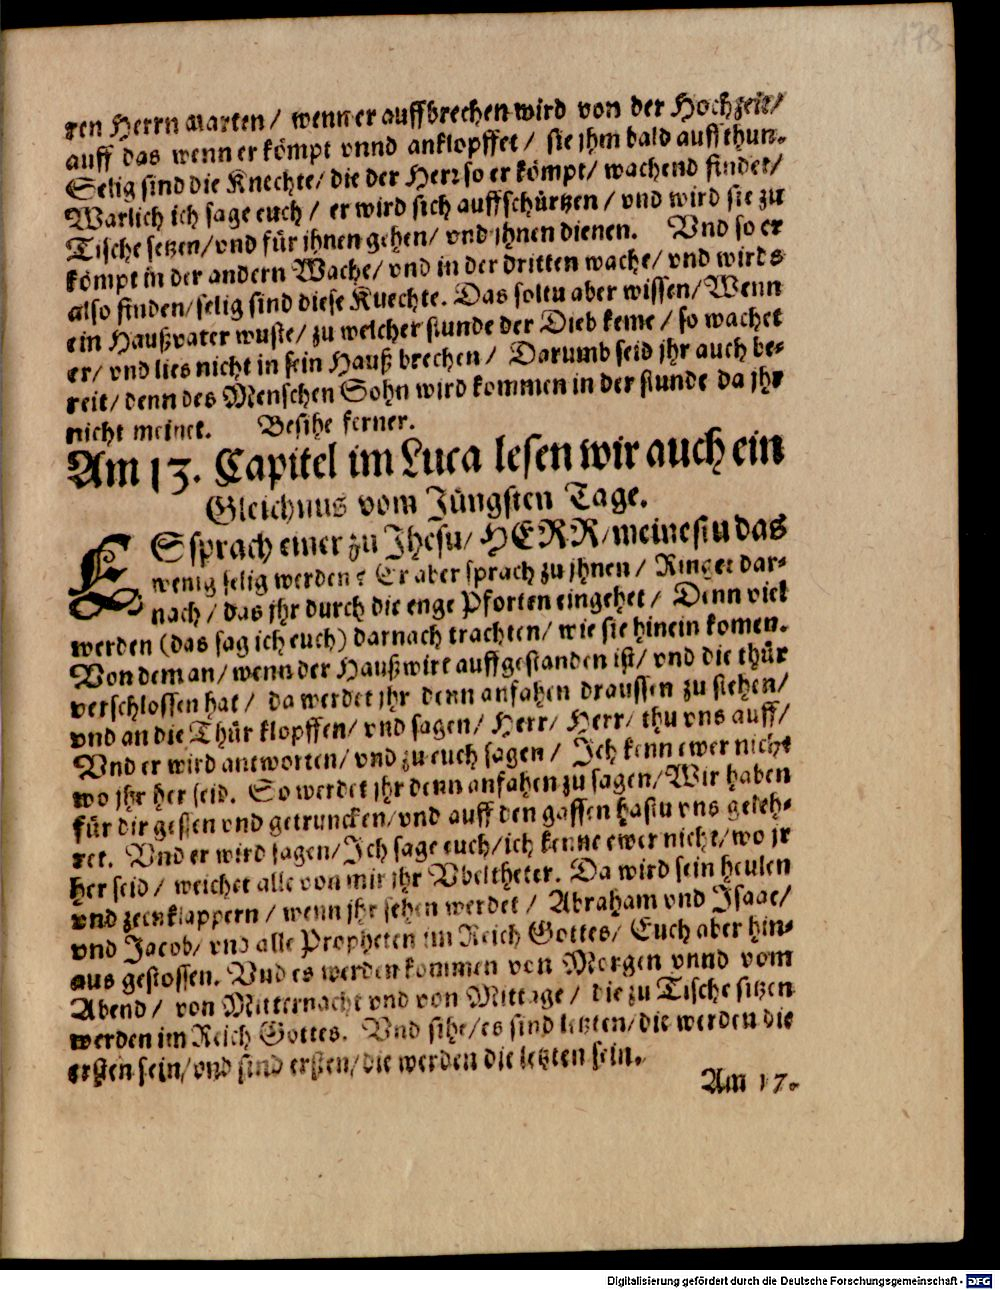 178
ren Herrn warten / wenn er auffbrechen wird von der Hochzeit /
auff das wenn er kömpt vnnd anklopffet / sie jhm bald auffthun.
Selig sind die Knechte / die der Herr so er kömpt / wachend findet /
Warlich ich sage euch / er wird sich auffschürtzen / vnd wird sie zu
Tische setzen / vnd für jhnen gehen / vnd jhnen dienen. Vnd so er
kömpt in der andern Wache / vnd in der dritten wache / vnd wirds
also finden / selig sind diese Knechte. Das soltu aber wissen / Wenn
ein Haußvater wuste / zu welcher stunde der Dieb keme / so wachet
er / vnd lies nicht in sein Hauß brechen / Darumb seid jhr auch be-
reit / denn des Menschen Sohn wird kommen in der stunde da jhr
nicht meinet. Besihe ferner.
Am 13. Capitel im Luca lesen wir auch ein
Gleichnus vom Jüngsten Tage.
ES sprach einer zu Jhesu / HERR / meinestu das
wenig selig werden? Er aber sprach zu jhnen / Ringet dar-
nach / das jhr durch die enge Pforten eingehet / Denn viel
werden (das sag ich euch) darnach trachten / wie sie hinein komen.
Von dem an / wenn der Haußwirt auffgestanden ist / vnd die thür
verschlossen hat / da werdet jhr denn anfahen draussen zu stehen /
vnd an die Thür klopffen / vnd sagen / Herr / Herr / thu vns auff /
Vnd er wird antworten / vnd zu euch sagen / Ich kenn ewer nicht
wo jhr her seid. So werdet jhr denn anfahen zu sagen / Wir haben
für dir gessen vnd getruncken / vnd auff den gassen hastu vns geleh-
ret. Vnd er wird sagen / Ich sage euch / ich kenne ewer nicht / wo jr
her seid / weichet alle von mir jhr Vbeltheter. Da wird sein heulen
vnd zeenklappern / wenn jhr sehen werdet / Abraham vnd Isaac /
vnd Jacob / vnd alle Propheten im Reich Gottes / Euch aber hin-
aus gestossen. Vnd es werden kommen von Morgen vnnd vom
Abend / von Mitternacht vnd von Mittage / die zu Tische sitzen
werden im Reich Gottes. Vnd sihe / es sind letzten / die werden die
ersten sein / vnd sind ersten / die werden die letzten sein.
Am 17.
Digitalisierung gefördert durch die Deutsche Forschungsgemeinschaft - DFG